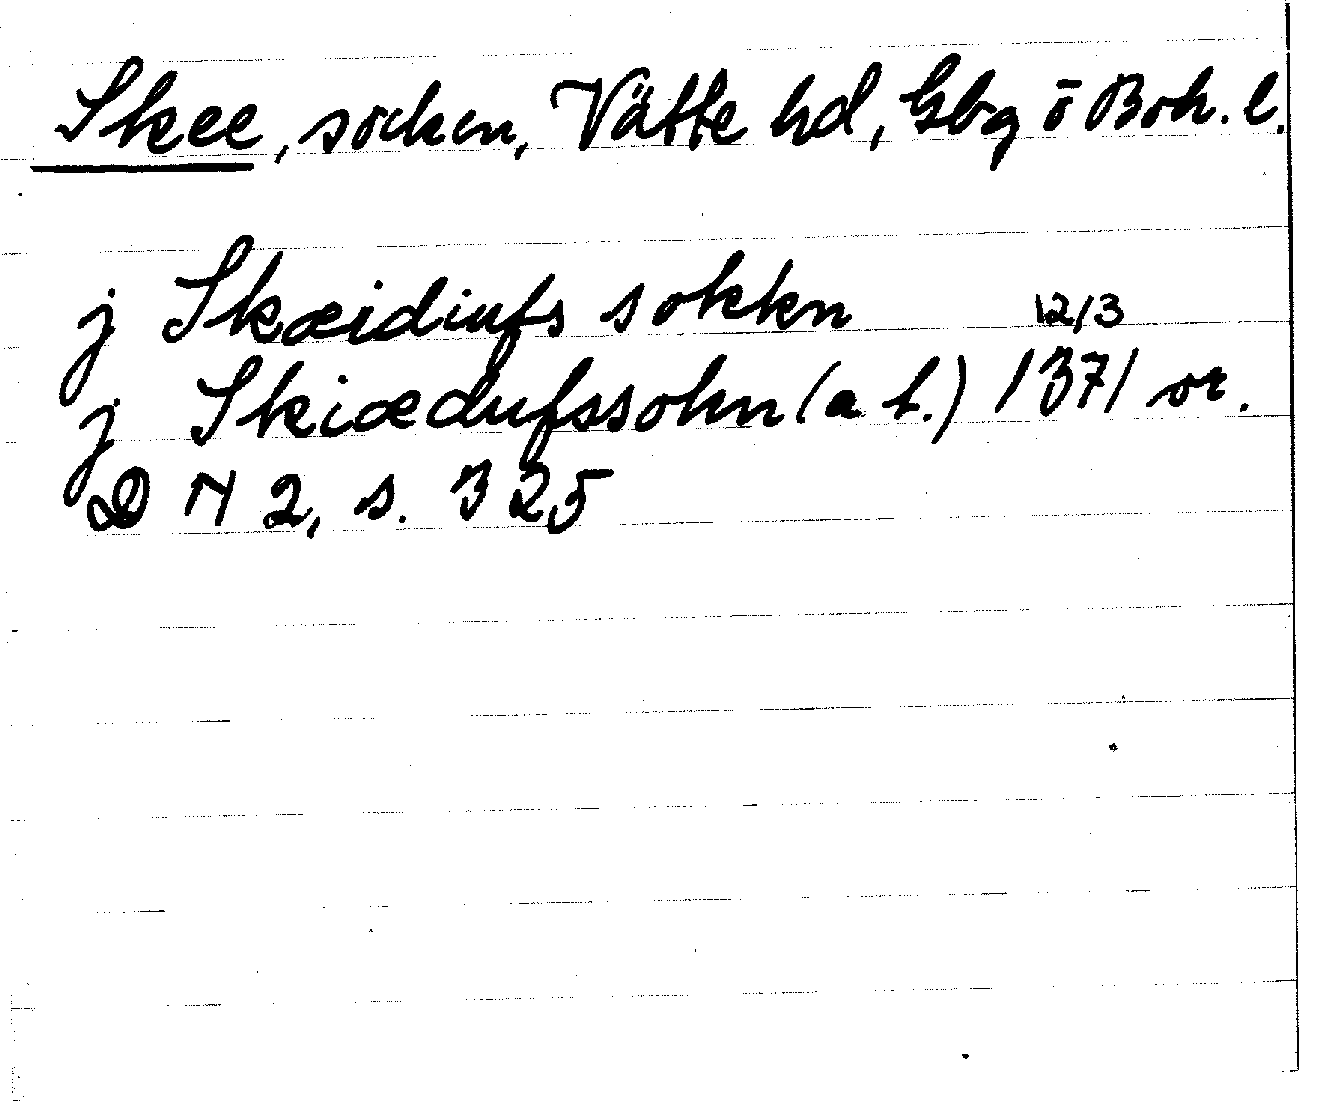 Skee, socken, Vätte hd, Gbg o Boh. l.
j Skæidiufs sokkn 12/3
j Skiædufssokn (a t.) 1371 or.
DN 2, s. 325